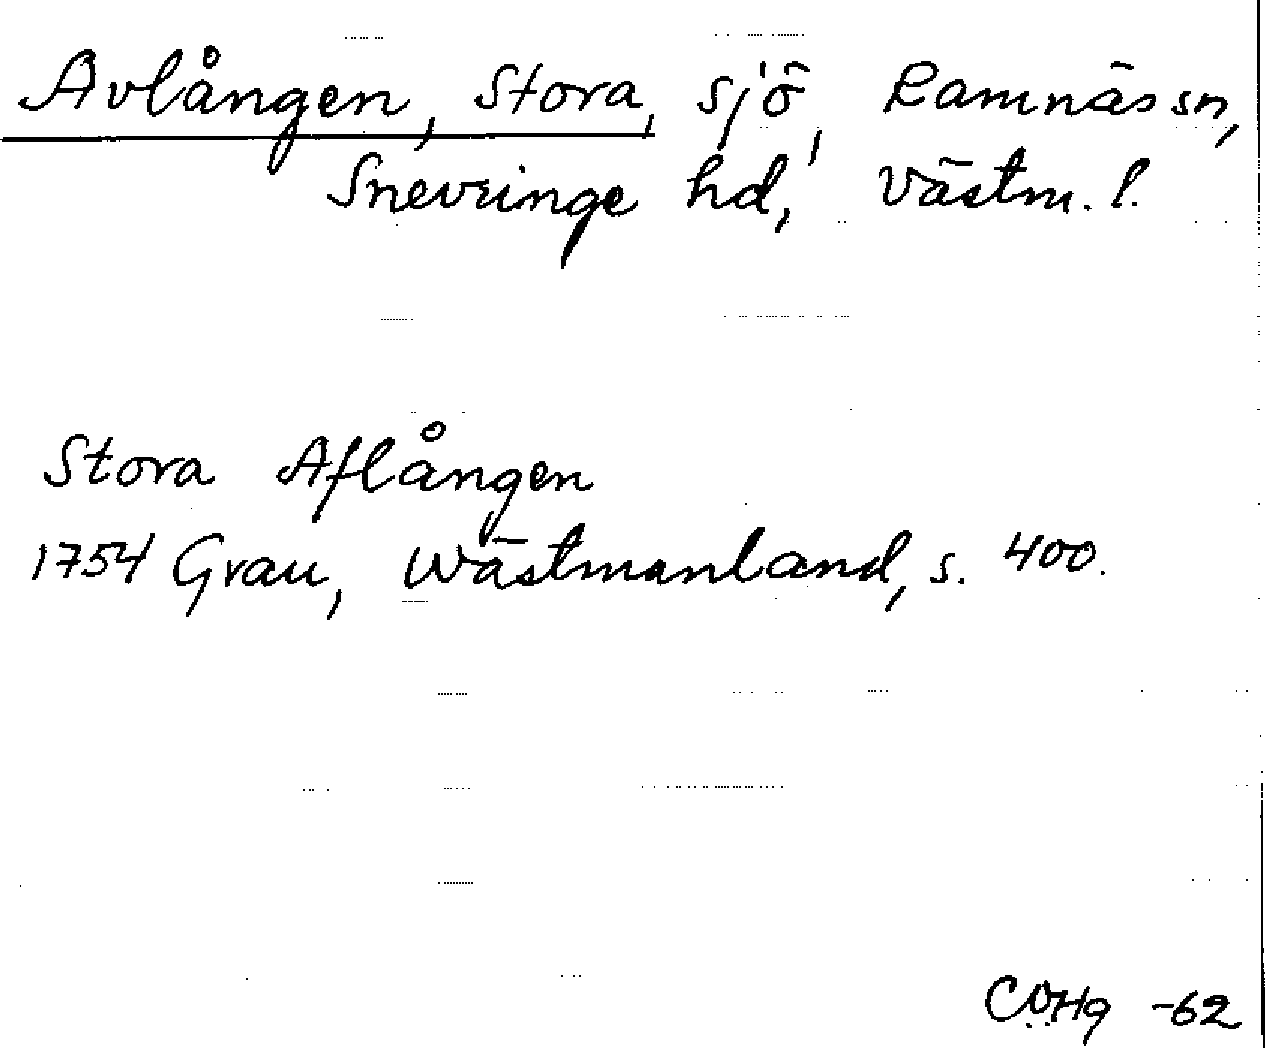 Avlången, Stora, sjö, Ramnäs sn,
Snevringe hd, Västm. l.
Stora Aflången
1754 Grau, Wästmanland, s. 400.
CÖHg -62